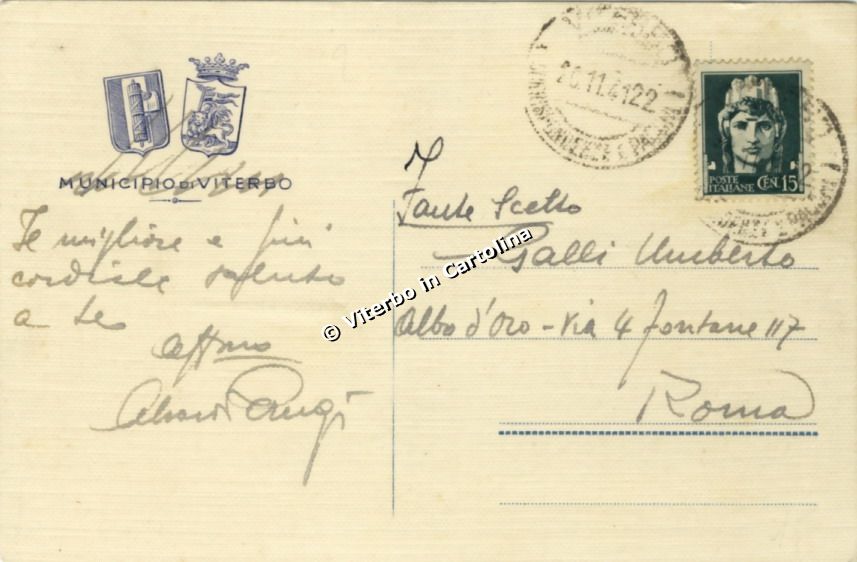 MUNICIPIO DI VITERBO
Te migliore e più
cordiale saluto
a te
affmo
20.11.41 22
CORRISPONDENZE E PACCHI
POSTE
ITALIANE CEN. 15
Fante Scelto
Galli Umberto
Albo d'Oro - Via 4 fontane 117
Roma
© Viterbo in Cartolina